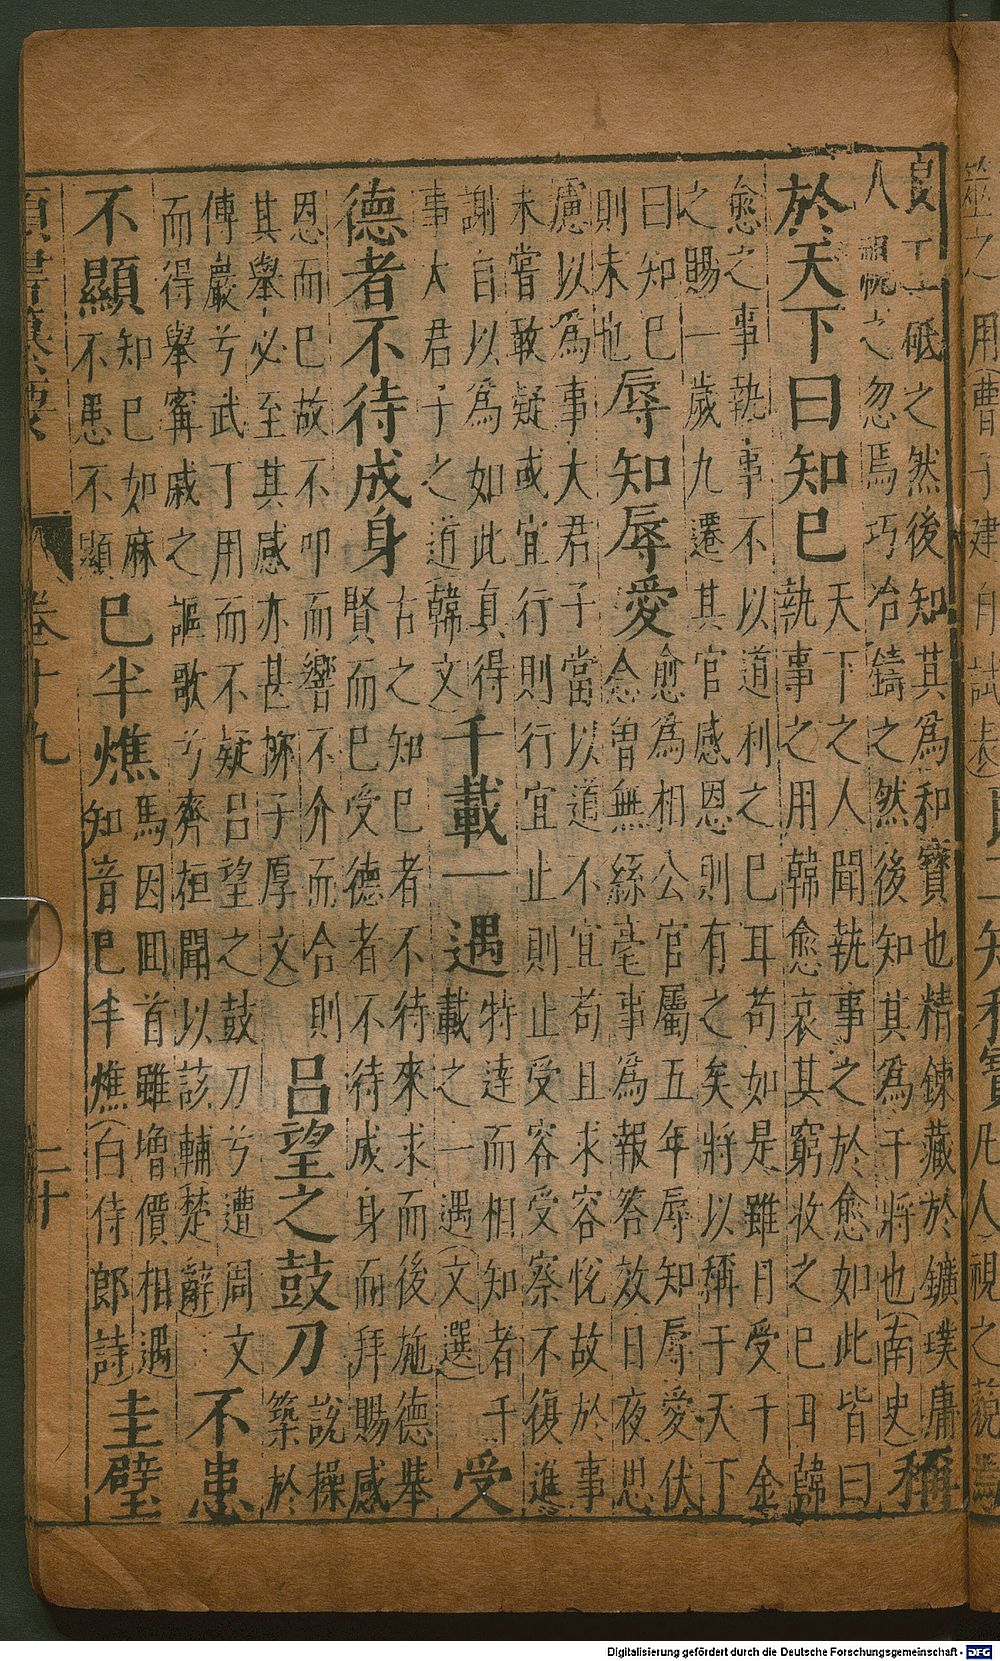 筮之用(曹子建自試表)良工知和寳凡人視之藐焉
良工砥之然後知其為和寶也精鍊藏於鑛璞庸
人視之忽焉巧冶鑄之然後知其為干將也(南史)
稱
於天下曰知巳
天下之人聞執事之於愈如此皆曰
執事之用韓愈哀其窮收之巳耳韓
愈之事執事不以道利之巳耳苟如是雖日受千金
之賜一歲九遷其官感恩則有之矣將以稱于天下
曰知巳
則未也
辱知辱愛
愈為相公官屬五年辱知辱愛伏
念曽無絲毫事為報答效日夜思
慮以為事大君子當以道不宜苟且求容恱故於事
未嘗敢疑或宜行則行宜止則止受容受察不復進
謝自以為如此真得
事大君子之道(韓文)
千載一遇
特逹而相知者千
載之一遇(文選)
受
德者不待成身
古之知巳者不待來求而後施德舉
賢而巳受德者不待成身而拜賜感
恩而巳故不叩而響不介而合則
其舉必至其感亦甚(栁子厚文)
呂望之鼓刀
說操
築於
傅巖兮武丁用而不疑呂望之鼓刀兮遭周文
而得舉甯戚之謳歌兮齊桓聞以該輔(楚辭)
不患
不顯
知巳如麻
不患不顯
巳半燋
馬因囬首雖增價相遇
知音巳半燋(白侍郎詩)
圭璧
卷十九
二十
Digitalisierung gefördert durch die Deutsche Forschungsgemeinschaft - DFG